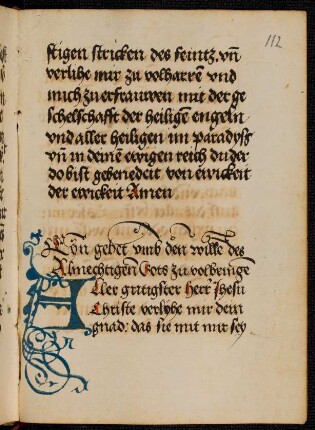 112
stigen stricken des feintz. vn̄
verlihe mir zu volharrē vnd
mich zu erfrauwen mit der ge
schelschafft der heiligē engeln
vnd aller heiligen im paradyß
vn̄ in deinē ewigen reich du der
do bist gebenedeit von ewickeit
der ewickeit Amen
Eyn gebet vmb den wille des
Almechtigen Gots zu volbringē
Aller gutigster herr Jhesu
Christe verlyhe mir dein
gnad: das sie mit mir sey